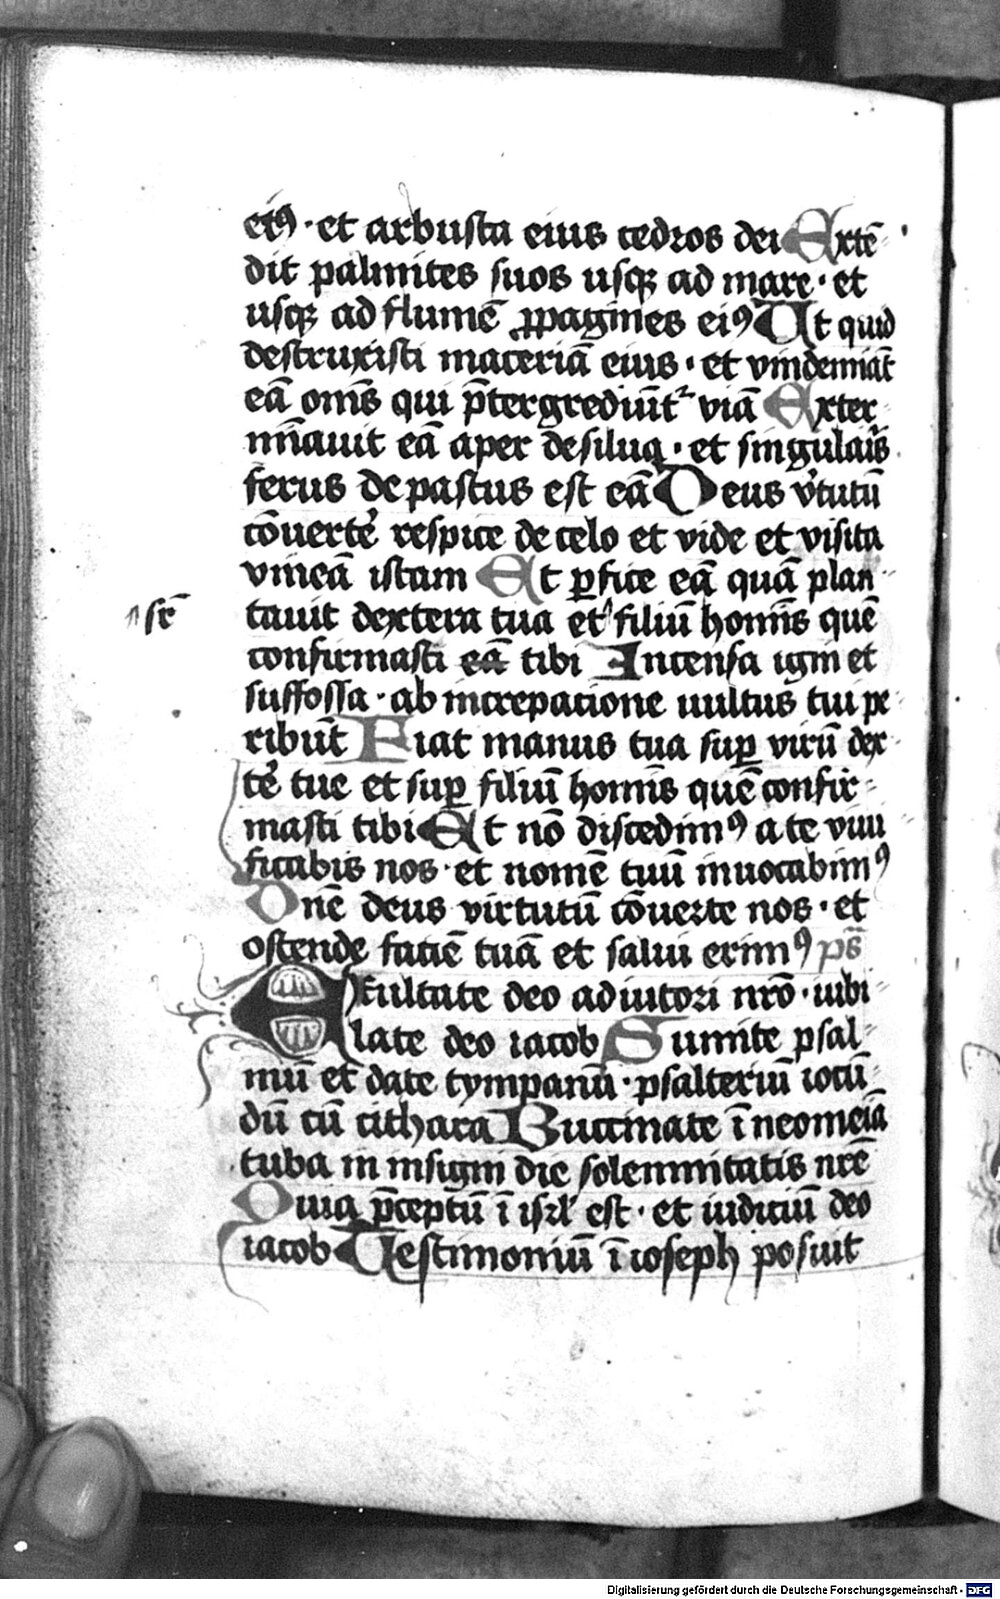 eiꝰ · et arbusta eius cedros dei Extē
dit palmites suos usqꝫ ad mare · et
usqꝫ ad flumē ꝓpagines eiꝰ Ut quid
destruxisti maceriā eius · et vindemiāt
eā om̄s qui p̄tergrediūt᷑ viā Exter
mīauit eā aper de silua · et singularis
ferus depastus est eā Deus v̓tutū
cōuerte̓ respice de celo et vide et visita
vineā istam Et ꝑfice eā quā plan
tauit dextera tua et filiū homīs quē
sr̄
confirmasti eā tibi Incensa igni et
suffossa · ab increpacione uultus tui pe
ribūt Fiat manus tua suꝑ virū dex
te̓ tue et suꝑ filiū homīs quē confir
masti tibi Et nō discedimꝰ a te viui
ficabis nos · et nomē tuū inuocabimꝰ
Dn̄e deus virtutū cōuerte nos · et
ostende faciē tuā et salui erimꝰ ps̄
Exultate deo adiutori nr̄o · iubi
late deo iacob Sumite psal
mū et date tympanū · psalteriū iocū
dū cū cithara Buccinate ī neomeīa
tuba in insigni die solemnitatis nr̄e
Quia p̄ceptū ī isrl̄ est · et iudiciū deo
iacob Testimoniū ī ioseph posuit
Digitalisierung gefördert durch die Deutsche Forschungsgemeinschaft - DFG